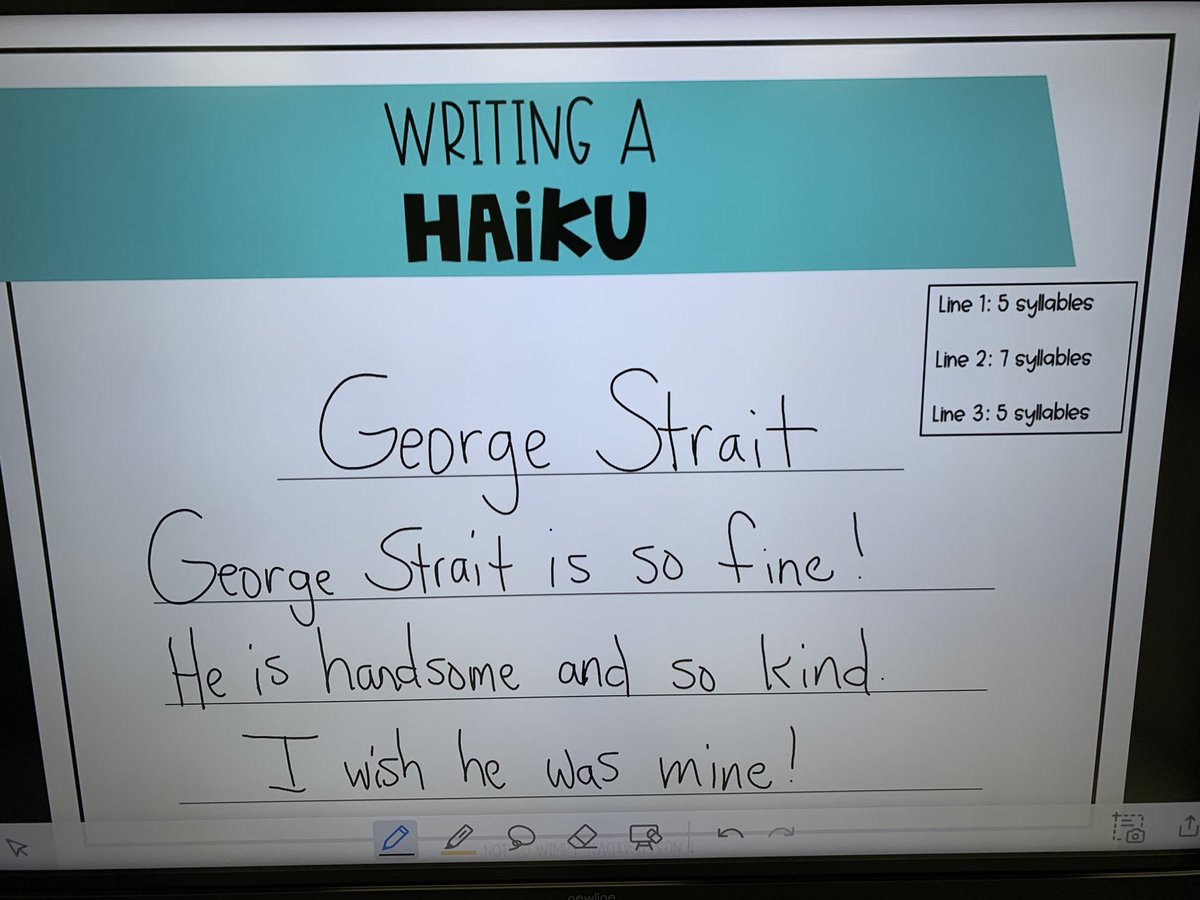 WRITING A
HAiKU
Line 1: 5 syllables
Line 2: 7 syllables
Line 3: 5 syllables
George Strait
George Strait is so fine!
He is handsome and so kind.
I wish he was mine!
newline